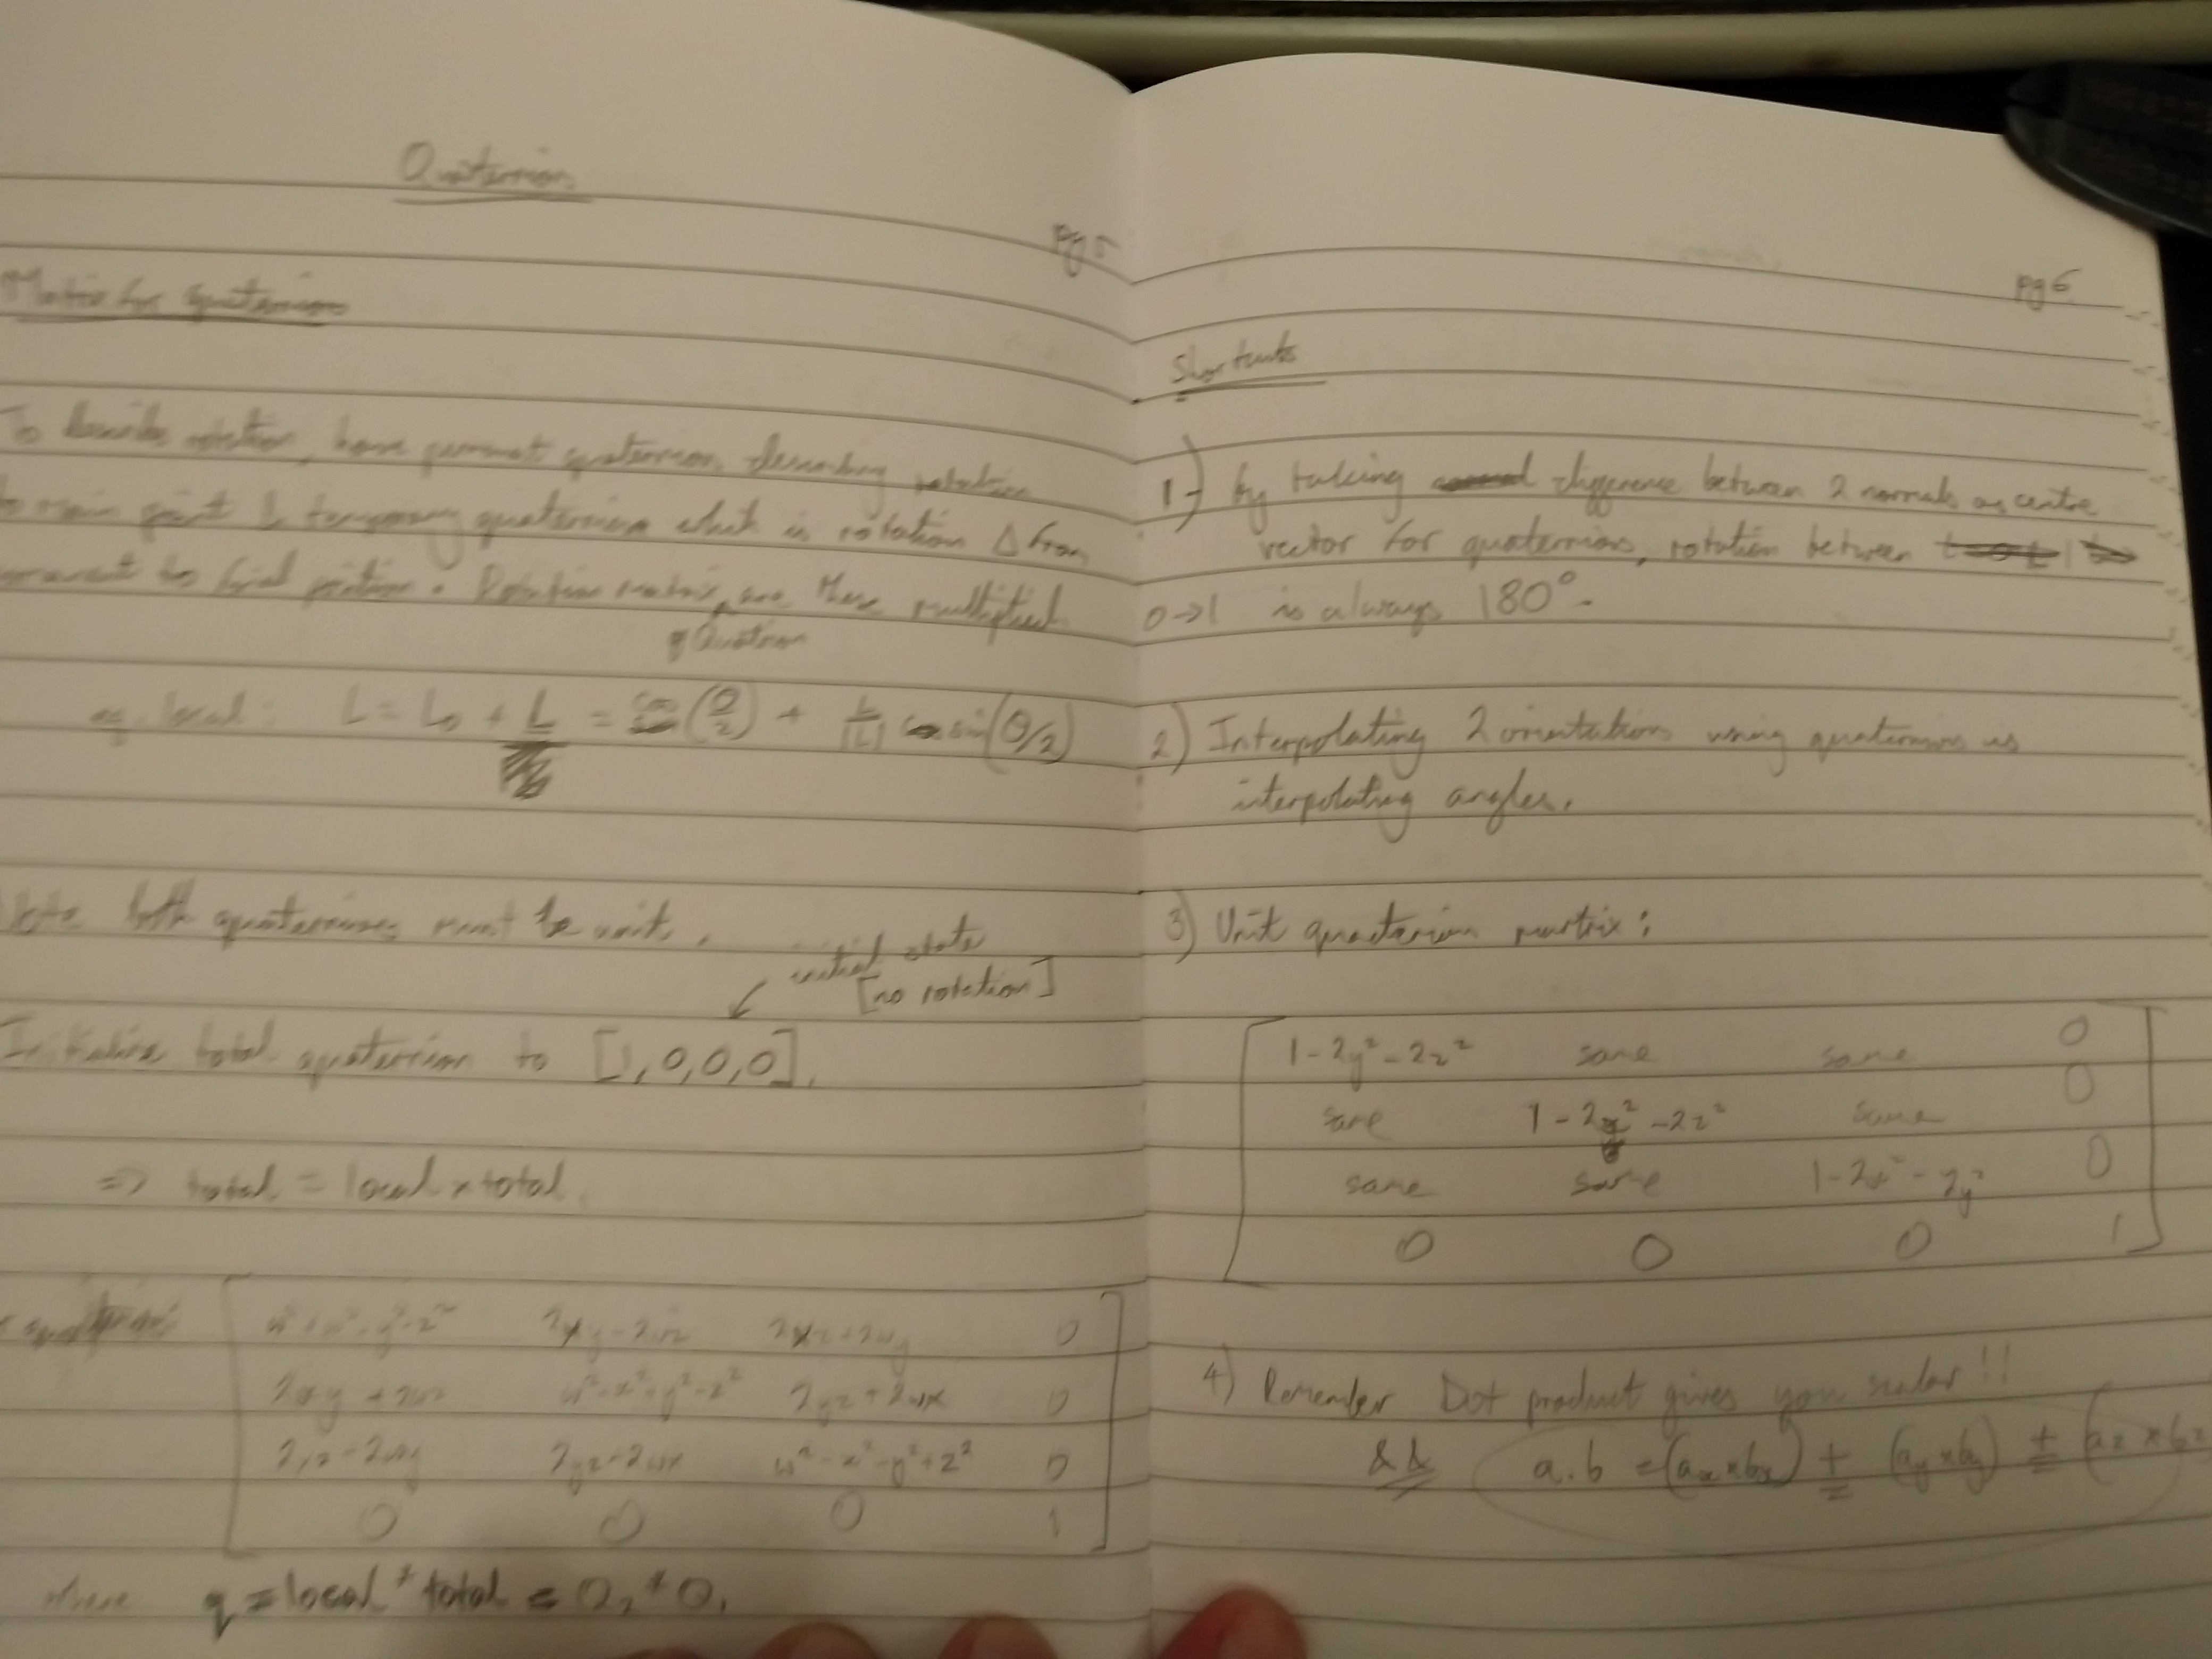 Quaternions
pg 5
Matrix for quaternions
To describe rotation, have permanent quaternion describing rotation
to main point & temporary quaternion which is rotation Δ from
permanent to final position. Rotation matrix are these multiplied.
Quatrion
eg. local: L = L₀ + L = cos(θ/2) + L/|L| sin(θ/2)
Note both quaternions must be unit.
initial state
[no rotation]
Initialise total quaternion to [1,0,0,0].
=> total = local × total.
w²+x²-y²-z² 2xy-2wz 2xz+2wy 0
2xy+2wz w²-x²+y²-z² 2yz+2wx 0
2xz-2wy 2yz-2wx w²-x²-y²+z² 0
0 0 0 1
where q = local * total = Q₂ * Q₁
pg 6
Shortcuts
1) by taking difference between 2 normals as centre
vector for quaternions, rotation between
0→1 is always 180°.
2) Interpolating 2 orientations using quaternions is
interpolating angles.
3) Unit quaternion matrix:
1-2y²-2z² same same 0
same 1-2x²-2z² same 0
same same 1-2x²-2y² 0
0 0 0 1
4) Remember Dot product gives you scalar!!
&& a.b = (ax×bx) + (ay×by) + (az×bz